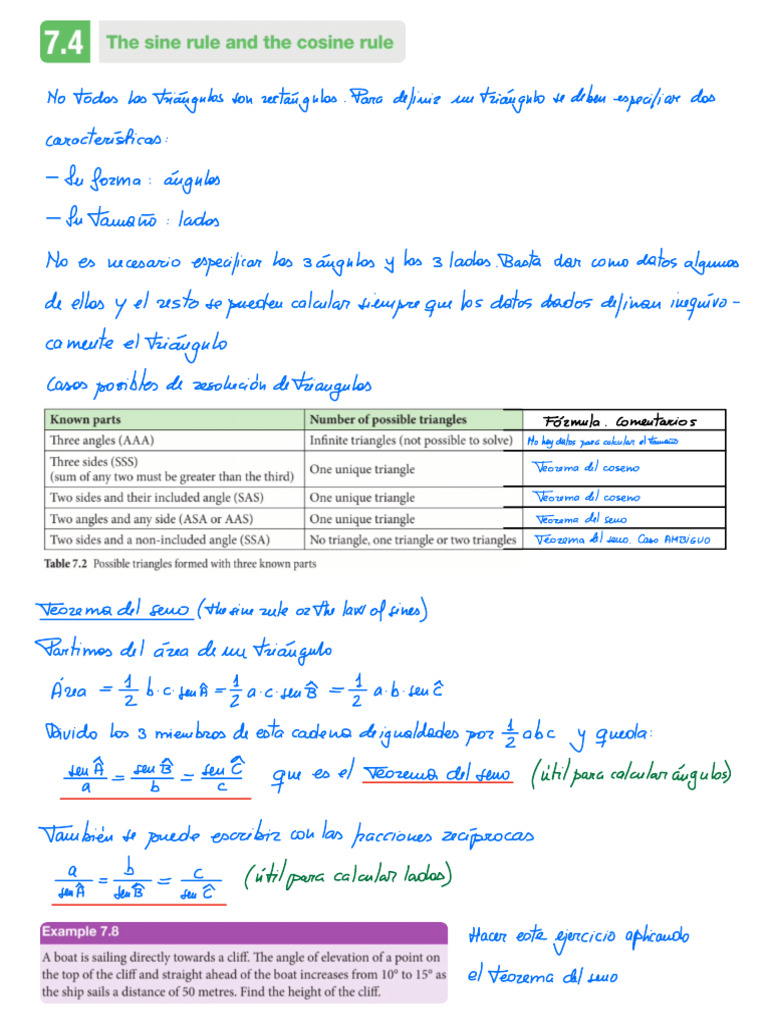 7.4 The sine rule and the cosine rule
No todos los triángulos son rectángulos. Para definir un triángulo se deben especificar dos
características:
- Su forma: ángulos
- Su tamaño: lados
No es necesario especificar los 3 ángulos y los 3 lados. Basta dar como datos algunos
de ellos y el resto se pueden calcular siempre que los datos dados definan inequívo-
camente el triángulo
Casos posibles de resolución de triangulos
Known parts Number of possible triangles Fórmula. Comentarios
Three angles (AAA) Infinite triangles (not possible to solve) No hay datos para calcular el tamaño
Three sides (SSS)
(sum of any two must be greater than the third) One unique triangle Teorema del coseno
Two sides and their included angle (SAS) One unique triangle Teorema del coseno
Two angles and any side (ASA or AAS) One unique triangle Teorema del seno
Two sides and a non-included angle (SSA) No triangle, one triangle or two triangles Teorema del seno. Caso AMBIGUO
Table 7.2 Possible triangles formed with three known parts
Teorema del seno (the sine rule or the law of sines)
Partimos del área de un triángulo
Área = 1/2 b·c·sen Â = 1/2 a·c·sen B̂ = 1/2 a·b·sen Ĉ
Divido los 3 miembros de esta cadena de igualdades por 1/2 abc y queda:
sen Â/a = sen B̂/b = sen Ĉ/c que es el Teorema del seno (útil para calcular ángulos)
También se puede escribir con las fracciones recíprocas
a/sen Â = b/sen B̂ = c/sen Ĉ (útil para calcular lados)
Example 7.8
A boat is sailing directly towards a cliff. The angle of elevation of a point on
the top of the cliff and straight ahead of the boat increases from 10° to 15° as
the ship sails a distance of 50 metres. Find the height of the cliff.
Hacer este ejercicio aplicando
el Teorema del seno